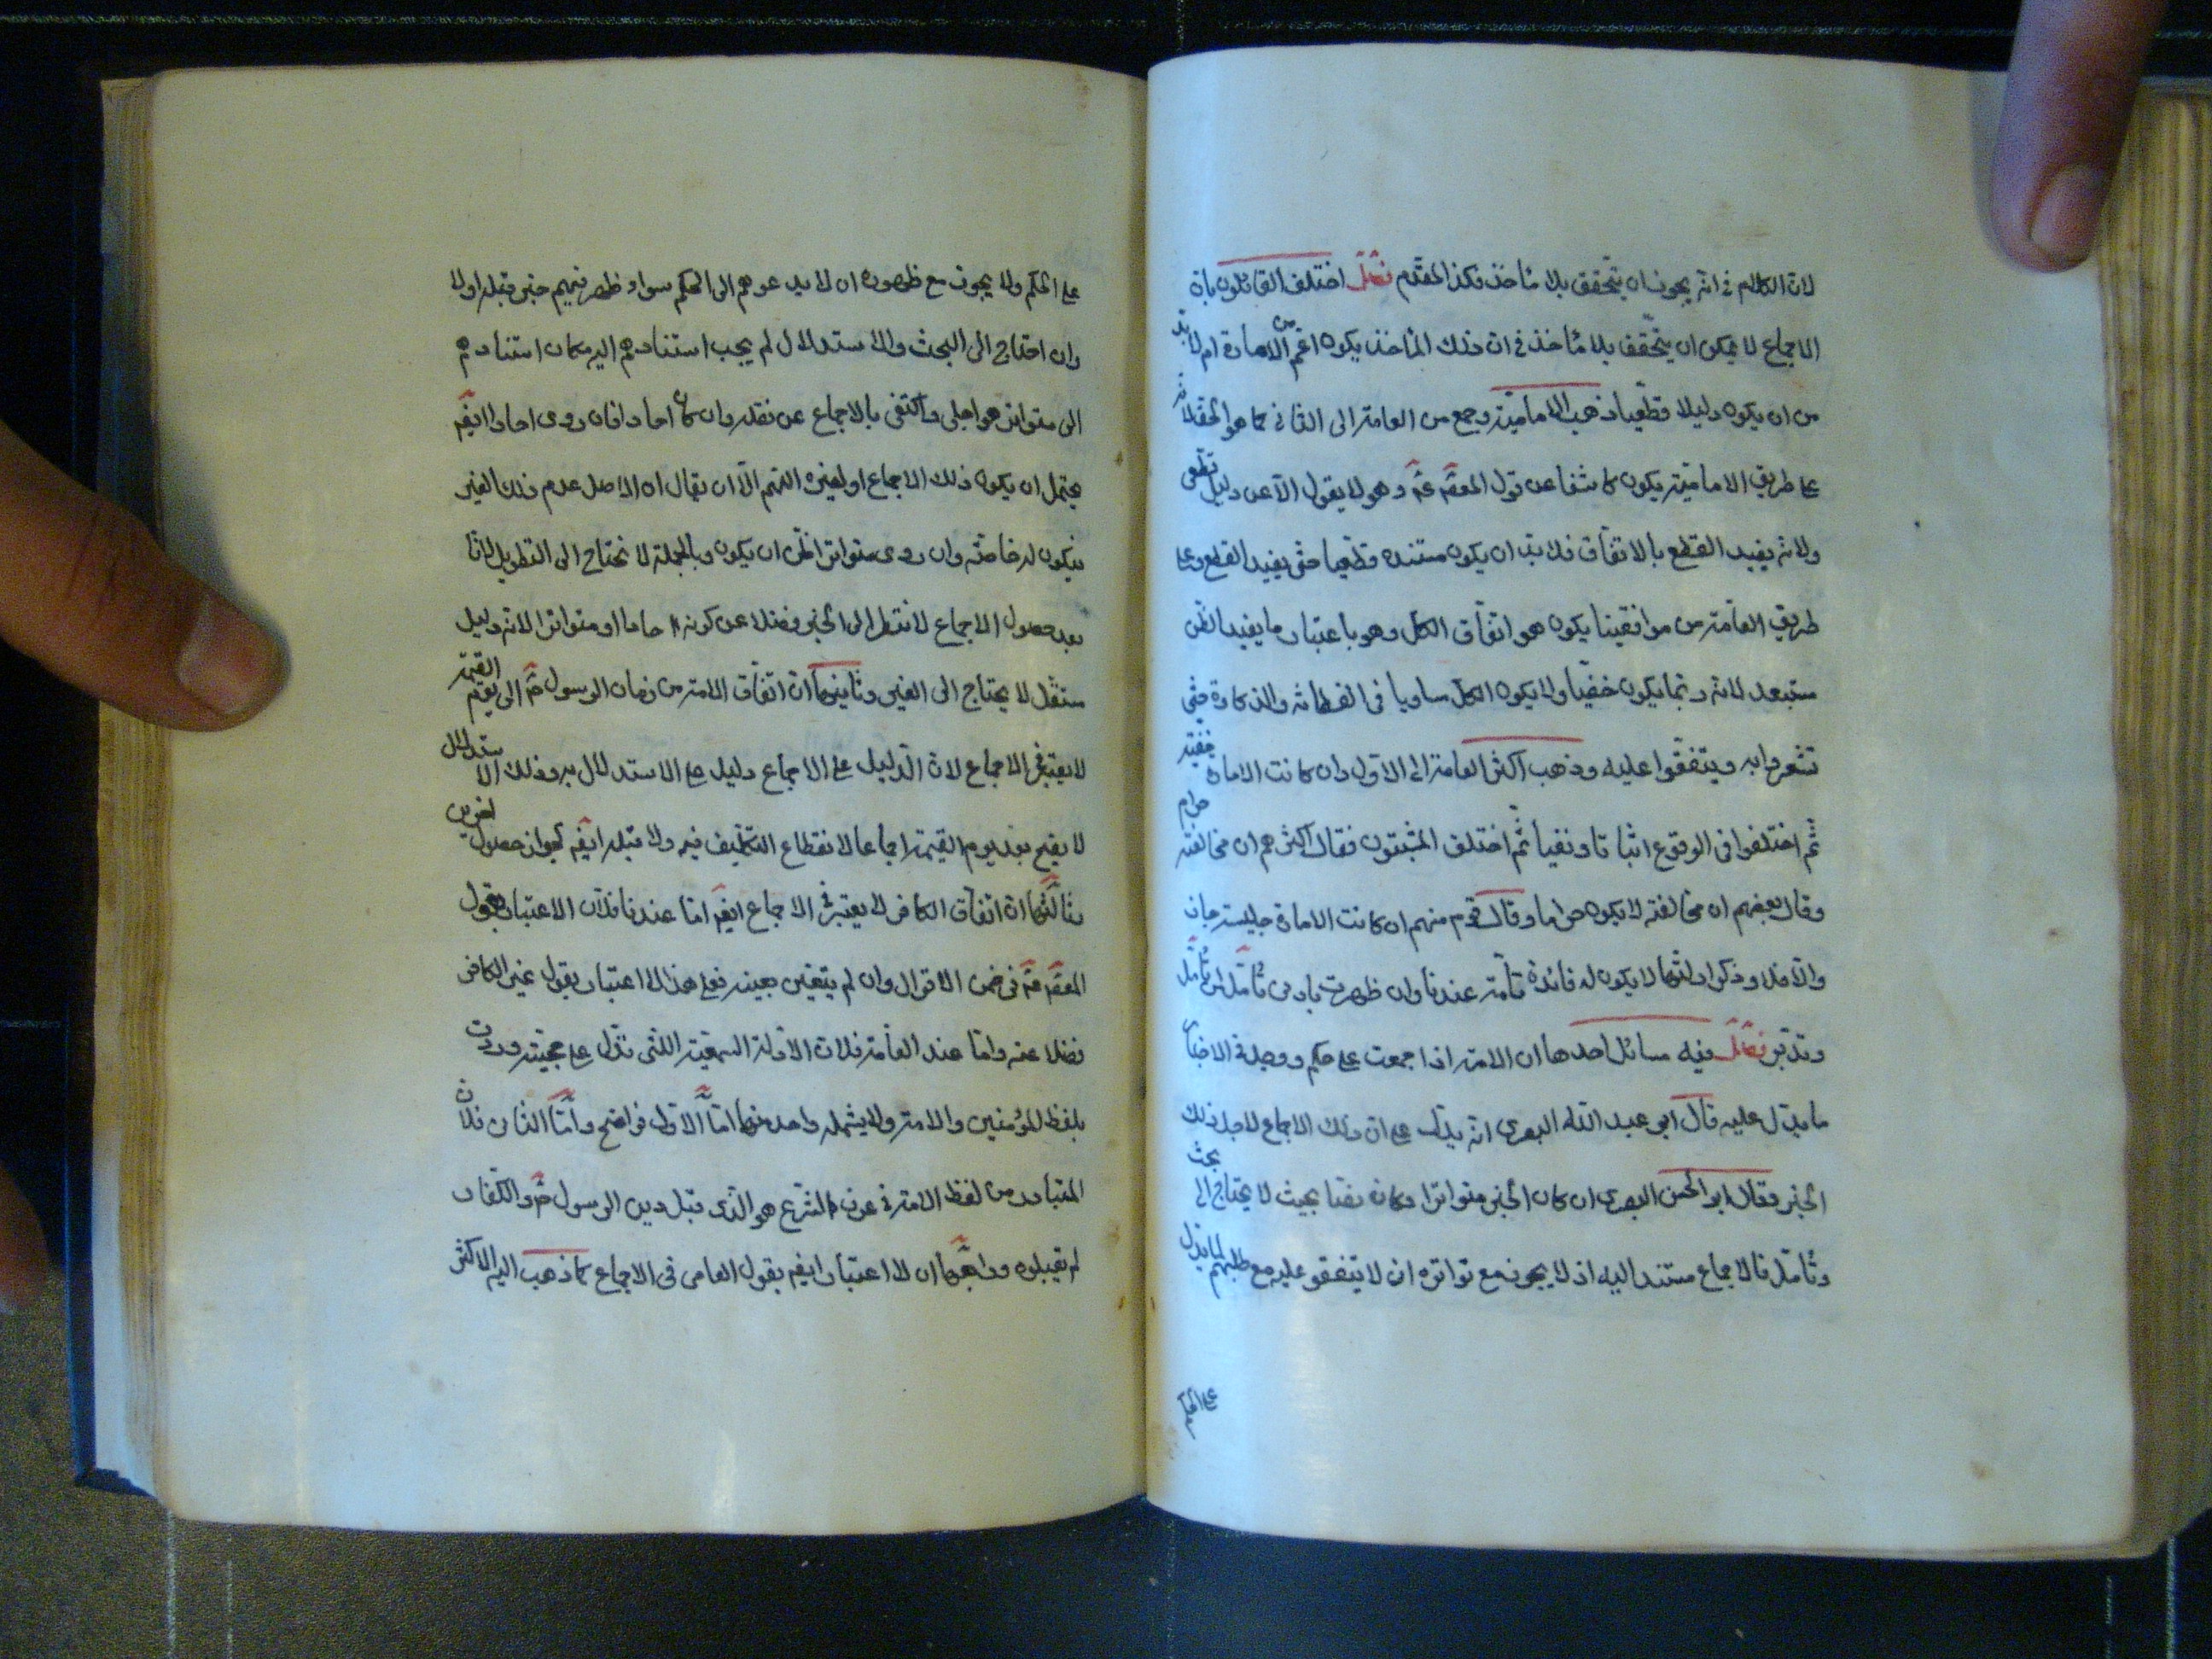 لان الكلام فى انه يجوز ان يتحقق بلا مأخذ فكذا المقدم فصل اختلف القائلون بان
الاجماع لا يمكن ان يتحقق بلا مأخذ فى ان ذلك المأخذ يكون اعم من الامارة ام لا بد
من ان يكون دليلا قطعيا ذهب الامامية وجمع من العامة الى الثانى كما هو الحق لانه
على طريق الامامية يكون كاشفا عن قول المعصم عم وهو لا يقول الا عن دليل قطعى
ولانه يفيد القطع بالاتفاق فلا بد ان يكون مستنده قطعيا حتى يفيد القطع وعلى
طريق العامة من موافقينا يكون هو اتفاق الكل وهو باعتبار ما يفيد الظن
مستبعد لانه ربما يكون خفيا ولا يكون الكل مساويا فى الفطانة والذكاوة حتى
تشعروا به ويتفقوا عليه وذهب اكثر العامة الى الاول وان كانت الامارة خفية
ثم اختلفوا فى الوقوع اثباتا ونفيا ثم اختلف المثبتون فقال اكثرهم ان مخالفته حرام
وقال بعضهم ان مخالفته لا يكون حراما وقال قوم منهم ان كانت الامارة جلية جاز
والا فلا وذكر ادلتها لا يكون له فائدة تامة عندنا وان ظهرت بادنى تأمل لمن تأمل
وتدبر فصل فيه مسائل احدها ان الامة اذا اجمعت على حكم ووجد فى الاخبار
ما يدل عليه قال ابو عبد الله البصرى انه يدل على ان ذلك الاجماع لاجل ذلك
الخبر وقال ابو الحسن البصرى ان كان الخبر متواترا وكان نصا بحيث لا يحتاج الى بحث
وتأمل فالاجماع مستند اليه اذ لا يجوز مع تواتره ان لا يتفقوا عليه مع طلبهم لما يدل
على الحكم
على الحكم ولا يجوز مع ظهوره ان لا يدعوهم الى الحكم سواء ظهر فيهم خبر قبله او لا
وان احتاج الى البحث والاستدلال لم يجب استنادهم اليه مكان استنادهم
الى متواتر هو اجلى واكتفى بالاجماع عن نقله وان كان احادا فان روى احادا ايضم
يحتمل ان يكون ذلك الاجماع او لغيره اللهم الا ان يقال ان الاصل عدم ذلك الغير
فيكون له خاصة وان روى متواترا ظن ان يكون وبالجملة لا نحتاج الى التطويل لانا
بعد حصول الاجماع لا ننظر الى الخبر وفضلا عن كونه احادا او متواترا لانه دليل
مستقل لا يحتاج الى الغير وثانيها ان اتفاق الامة من زمان الرسول صم الى يوم القيمة
لا يعتبر فى الاجماع لان الدليل على الاجماع دليل على الاستدلال به وذلك الاستدلال
لا يقع بعد يوم القيمة اجماعا لانقطاع التكليف فيه ولا قبله ايضم لجواز حصول اخرين
وثالثها ان اتفاق الكافر لا يعتبر فى الاجماع ايضم اما عندنا فلان الاعتبار بقول
المعصم عم فى ضمن الاقوال وان لم يتعين بعينه فعلى هذا لا اعتبار بقول غير الكافر
فضلا عنه واما عند العامة فلان الادلة السمعية اللتى تدل على حجيته وردت
بلفظ المؤمنين والامة ولا يشمله واحد منهما اما الاول فواضح واما الثانى فلان
المتبادر من لفظ الامة فى عرف الشرع هو الذى قبل دين الرسول صم والكفار
لم يقبلوه ورابعها ان لا اعتبار ايضم بقول العامى فى الاجماع كما ذهب اليه الاكثر